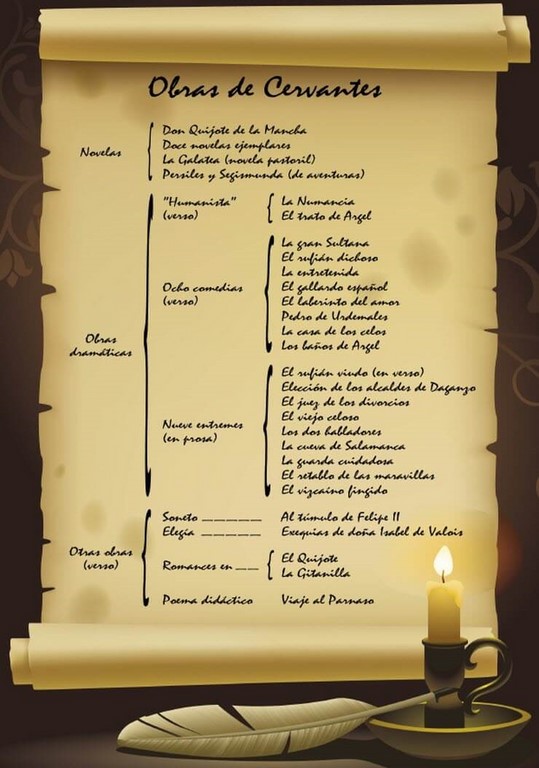 Obras de Cervantes
Novelas
Don Quijote de la Mancha
Doce novelas ejemplares
La Galatea (novela pastoril)
Persiles y Segismunda (de aventuras)
Obras
dramáticas
"Humanista"
(verso)
La Numancia
El trato de Argel
Ocho comedias
(verso)
La gran Sultana
El rufián dichoso
La entretenida
El gallardo español
El laberinto del amor
Pedro de Urdemales
La casa de los celos
Los baños de Argel
Nueve entremes
(en prosa)
El rufián viudo (en verso)
Elección de los alcaldes de Daganzo
El juez de los divorcios
El viejo celoso
Los dos habladores
La cueva de Salamanca
La guarda cuidadosa
El retablo de las maravillas
El vizcaíno fingido
Otras obras
(verso)
Soneto ______ Al túmulo de Felipe II
Elegía ______ Exequias de doña Isabel de Valois
Romances en __
El Quijote
La Gitanilla
Poema didáctico Viaje al Parnaso